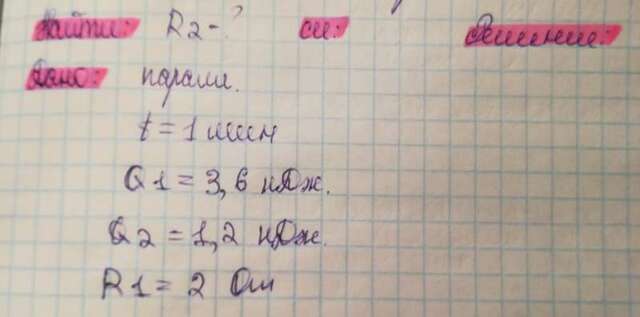 Найти: R2-? си: Решение:
Дано: парал.
t = 1 мин
Q1 = 3,6 кДж.
Q2 = 1,2 кДж.
R1 = 2 Ом